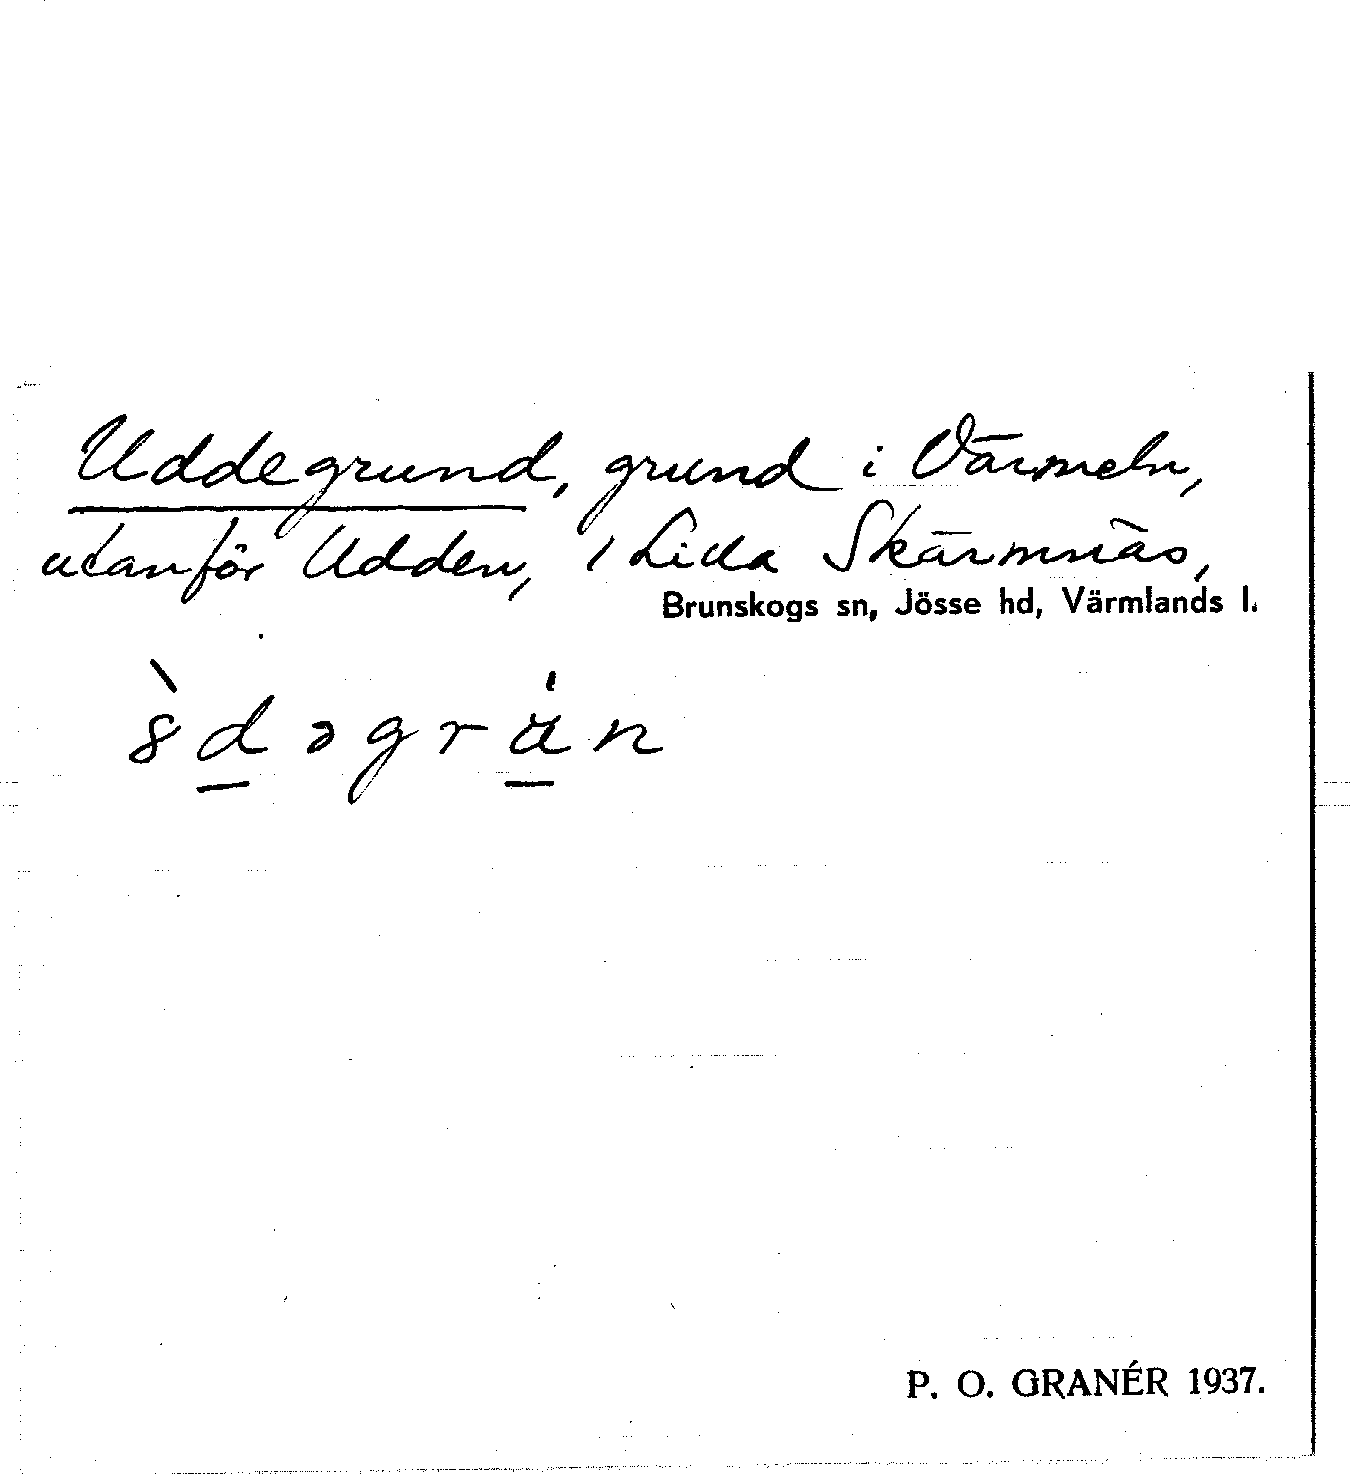 Uddegrund, grund i Värmeln,
utanför Udden, 1 Lilla Skärmnäs,
Brunskogs sn, Jösse hd, Värmlands l.
P. O. GRANÉR 1937.